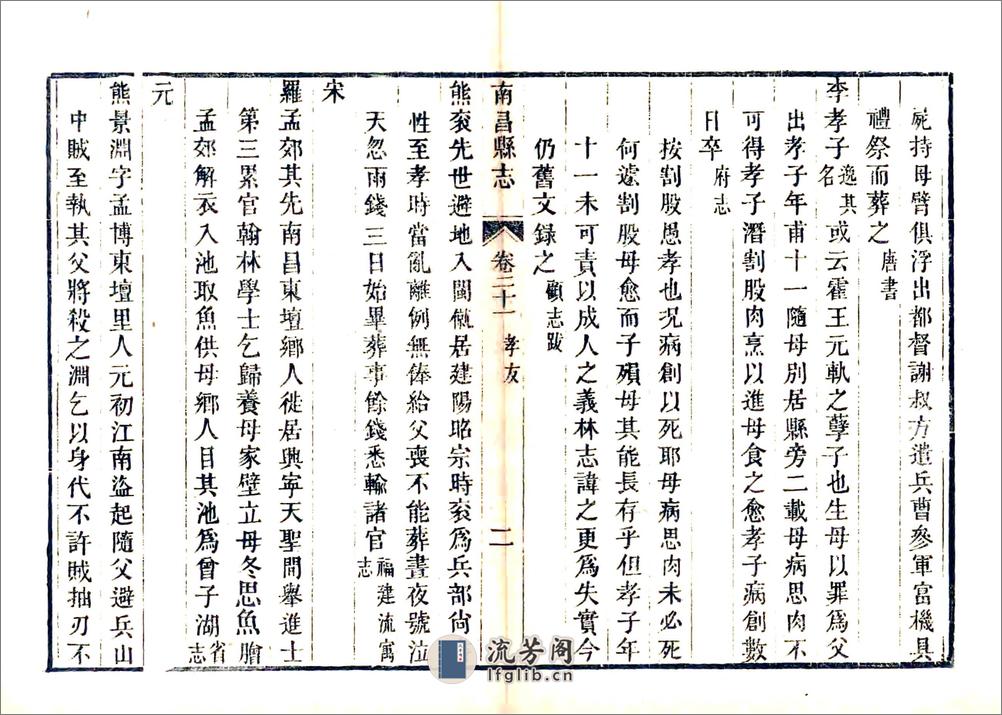 屍持母臂俱浮出都督謝叔方遣兵曹參軍富機具
禮祭而葬之唐書
李孝子逸其名或云霍王元軌之孽子也生母以罪爲父
出孝子年甫十一隨母別居縣旁二載母病思肉不
可得孝子潛割股肉烹以進母食之愈孝子病創數
日卒府志
按割股愚孝也況病創以死耶母病思肉未必死
何遽割股母愈而子殞母其能長存乎但孝子年
十一未可責以成人之義林志諱之更爲失實今
仍舊文錄之顧志跋
熊袞先世避地入閩僦居建陽昭宗時袞爲兵部尙
南昌縣志 卷二十一 孝友 二
性至孝時當亂離例無俸給父喪不能葬晝夜號泣
天忽雨錢三日始畢葬事餘錢悉輸諸官福建流寓志
宋
羅孟郊其先南昌東壇鄉人徙居興寧天聖間舉進士
第三累官翰林學士乞歸養母家壁立母冬思魚膾
孟郊解衣入池取魚供母鄉人目其池爲曾子湖省志
元
熊景淵字孟博東壇里人元初江南盜起隨父避兵山
中賊至執其父將殺之淵乞以身代不許賊抽刃不
流芳阁
lfglib.cn